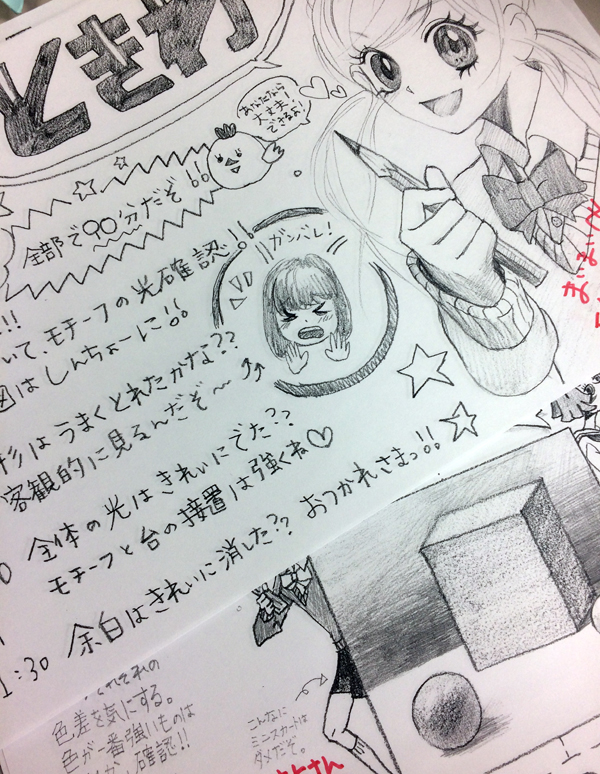 ときわ
あなただけ
大丈夫
できるよ!
全部で90分だぞ!!
ガンバレ!
!!
いて、モチーフの光確認!!
図はしんちょーに!!
形はうまくとれたかな??
客観的に見るんだぞ〜
全体の光はきれいにでた??
モチーフと台の接置は強くね♡
1:30 余白はきれいに消した?? おつかれさまっ!!
それぞれの
色差を気にする。
色が一番強いものは
確認!!
こんなに
ミニスカートは
ダメだぞ。
さん